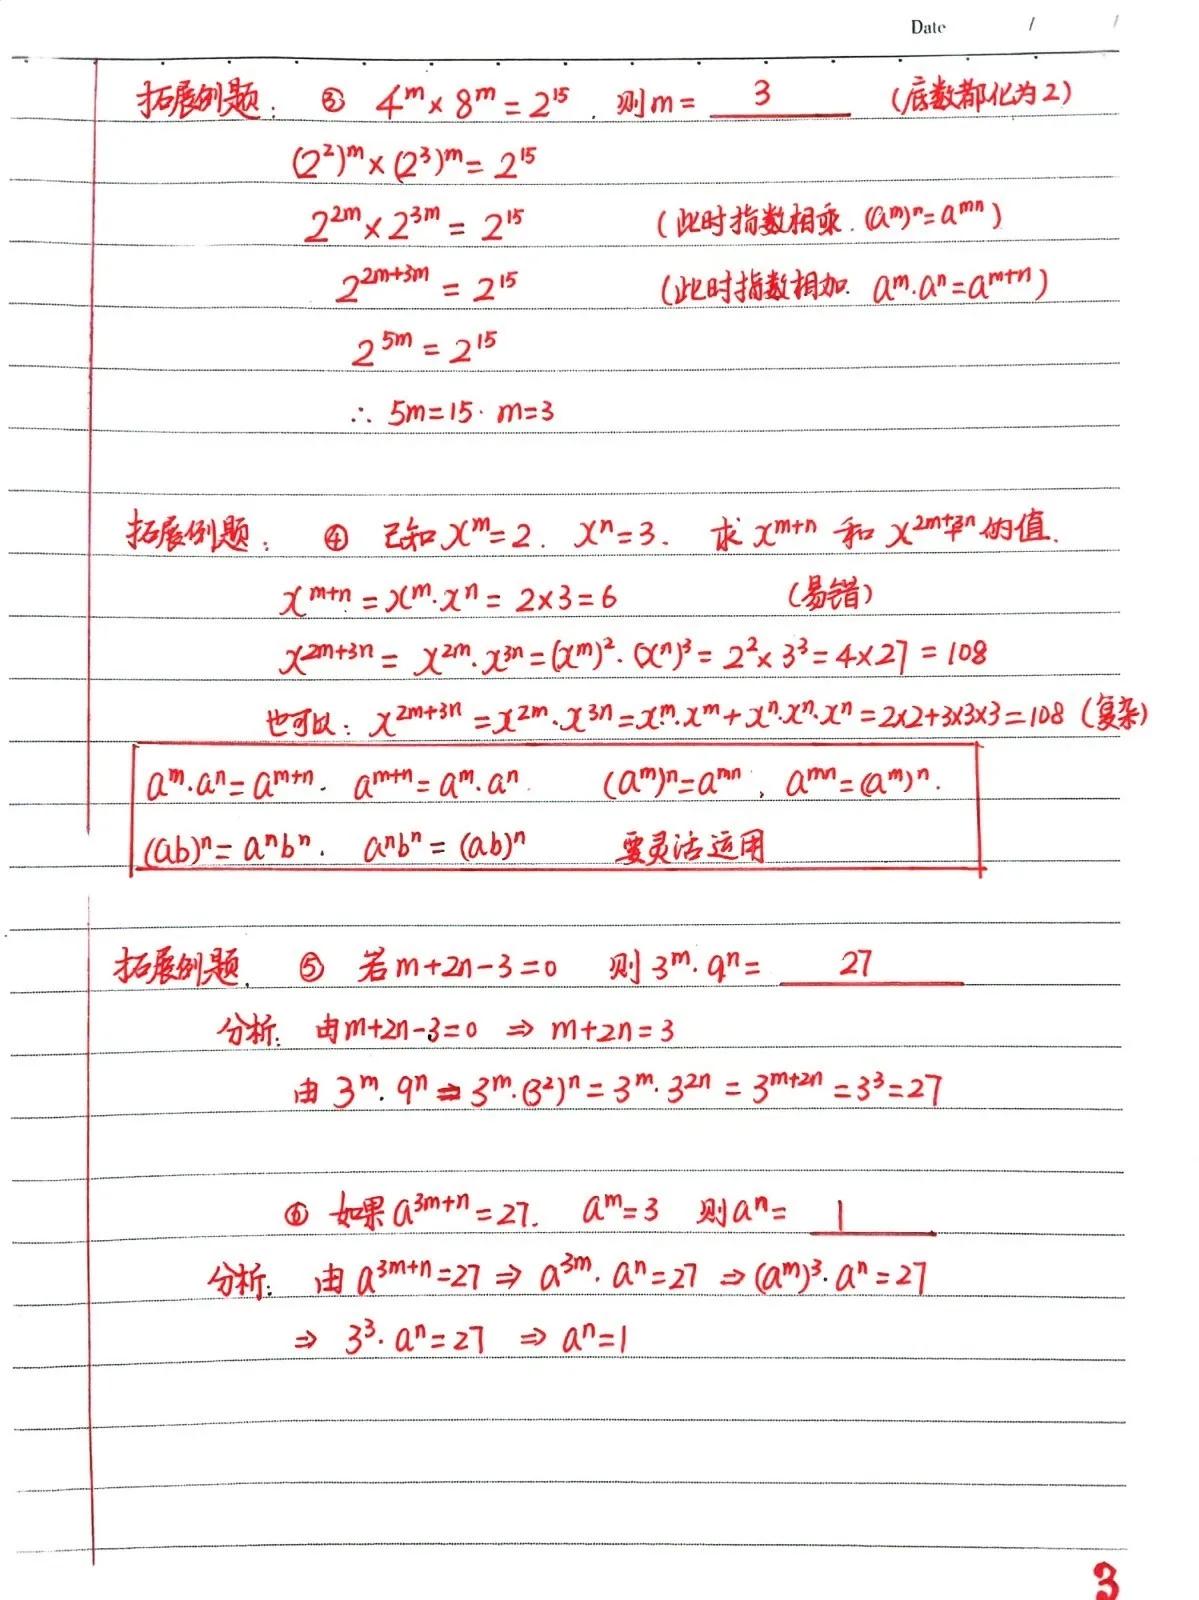 Date / /
拓展例题: ③ 4^m × 8^m = 2^15. 则m = 3 (底数都化为2)
(2^2)^m × (2^3)^m = 2^15
2^2m × 2^3m = 2^15 (此时指数相乘. (a^m)^n = a^mn)
2^2m+3m = 2^15 (此时指数相加. a^m·a^n = a^m+n)
2^5m = 2^15
∴ 5m=15. m=3
拓展例题: ④ 已知 x^m=2. x^n=3. 求 x^m+n 和 x^2m+3n 的值.
x^m+n = x^m·x^n = 2×3=6 (易错)
x^2m+3n = x^2m·x^3n = (x^m)^2·(x^n)^3 = 2^2×3^3 = 4×27 = 108
也可以: x^2m+3n = x^2m·x^3n = x^m·x^m + x^n·x^n·x^n = 2×2+3×3×3 = 108 (复杂)
a^m·a^n = a^m+n. a^m+n = a^m·a^n. (a^m)^n = a^mn, a^mn = (a^m)^n.
(ab)^n = a^n b^n. a^n b^n = (ab)^n 要灵活运用
拓展例题. ⑤ 若m+2n-3=0 则 3^m·9^n = 27
分析: 由m+2n-3=0 ⇒ m+2n=3
由 3^m·9^n ⇒ 3^m·(3^2)^n = 3^m·3^2n = 3^m+2n = 3^3 = 27
⑥ 如果a^3m+n = 27. a^m=3 则a^n = 1
分析: 由a^3m+n=27 ⇒ a^3m·a^n=27 ⇒ (a^m)^3·a^n=27
⇒ 3^3·a^n=27 ⇒ a^n=1
3